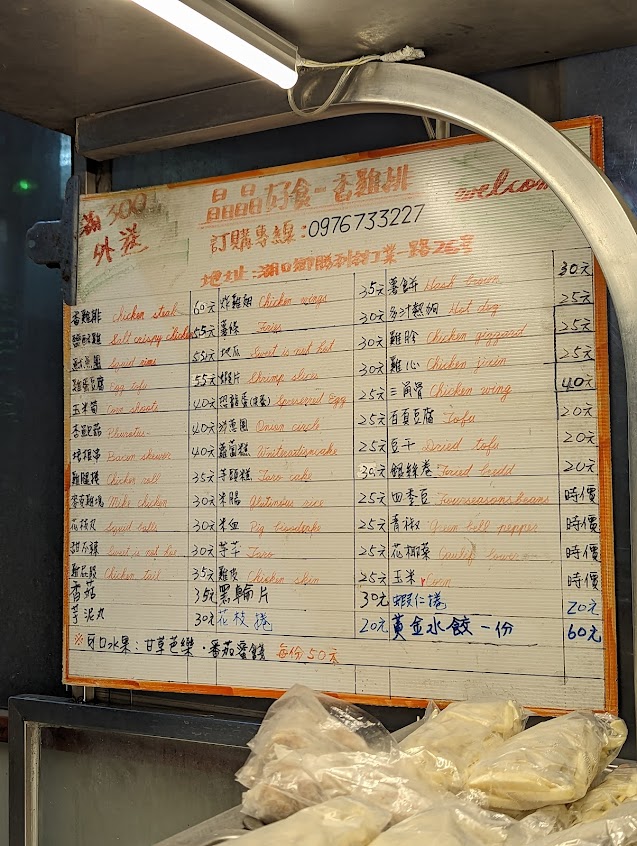 滿300
外送
晶晶好食-香雞排
welcom
訂購專線:0976733227
地址:湖口鄉勝利村工業一路26号
香雞排 Chicken steak 60元 炸雞翅 Chicken wings 35元 薯餅 Hash brown 30元
鹽酥雞 Salt crispy chicken 55元 薯條 Fries 30元 多汁熱狗 Hot dog 25元
魷魚圈 Squid rims 55元 地瓜 Sweet is not hot 30元 雞胗 Chicken gizzard 25元
雞蛋豆腐 Egg tofu 55元 蝦片 Shrimp slices 30元 雞心 Chicken 25元
玉米筍 Corn shoots 40元 恐龍蛋 Egg 25元 三角骨 Chicken wing 40元
杏鮑菇 40元 洋蔥圈 Onion circle 25元 百頁豆腐 Tofu 20元
培根串 Bacon skewer 40元 蘿蔔糕 25元 豆干 Dried tofu 20元
雞腿捲 Chicken roll 35元 芋頭糕 Taro cake 30元 銀絲卷 20元
麥克雞塊 Mike chicken 30元 米腸 Glutinous rice 25元 四季豆 Fourseasons beans 時價
花枝丸 Squid balls 30元 米血 Pig 25元 青椒 Green bell pepper 時價
甜不辣 Sweet is not hot 30元 芋芊 Taro 25元 花椰菜 Caulif lower 時價
雞屁股 Chicken tail 35元 雞皮 Chicken skin 25元 玉米 Corn 時價
香菇 35元 黑輪片 30元 蝦仁捲 20元
芋泥丸 30元 花枝捲 20元 黃金水餃一份 60元
※ 牙口水果:甘草芭樂·番茄蜜餞 每份50元